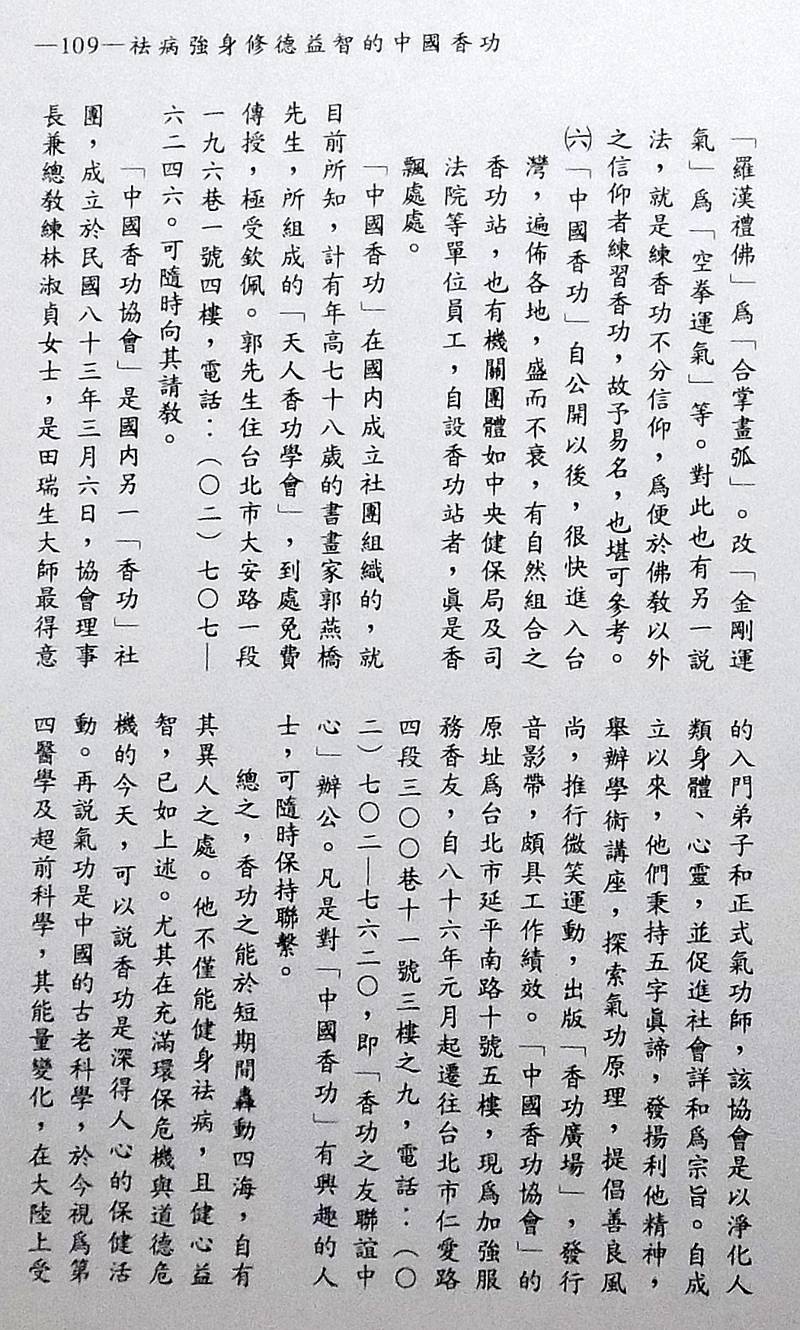 —109—祛病強身修德益智的中國香功
「羅漢禮佛」爲「合掌畫弧」。改「金剛運
氣」爲「空拳運氣」等。對此也有另一説
法，就是練香功不分信仰，爲便於佛教以外
之信仰者練習香功，故予易名，也堪可參考。
㈥「中國香功」自公開以後，很快進入台
灣，遍佈各地，盛而不衰，有自然組合之
香功站，也有機關團體如中央健保局及司
法院等單位員工，自設香功站者，眞是香
飄處處。
「中國香功」在國内成立社團組織的，就
目前所知，計有年高七十八歲的書畫家郭燕橋
先生，所組成的「天人香功學會」，到處免費
傳授，極受欽佩。郭先生住台北市大安路一段
一九六巷一號四樓，電話：（〇二）七〇七—
六二四六。可隨時向其請教。
「中國香功協會」是國内另一「香功」社
團，成立於民國八十三年三月六日，協會理事
長兼總教練林淑貞女士，是田瑞生大師最得意
的入門弟子和正式氣功師，該協會是以淨化人
類身體、心靈，並促進社會詳和爲宗旨。自成
立以來，他們秉持五字眞諦，發揚利他精神，
舉辦學術講座，探索氣功原理，提倡善良風
尚，推行微笑運動，出版「香功廣場」，發行
音影帶，頗具工作績效。「中國香功協會」的
原址爲台北市延平南路十號五樓，現爲加強服
務香友，自八十六年元月起遷往台北市仁愛路
四段三〇〇巷十一號三樓之九，電話：（〇
二）七〇二—七六二〇，即「香功之友聯誼中
心」辦公。凡是對「中國香功」有興趣的人
士，可隨時保持聯繫。
總之，香功之能於短期間轟動四海，自有
其異人之處。他不僅能健身祛病，且健心益
智，已如上述。尤其在充滿環保危機與道德危
機的今天，可以説香功是深得人心的保健活
動。再説氣功是中國的古老科學，於今視爲第
四醫學及超前科學，其能量變化，在大陸上受